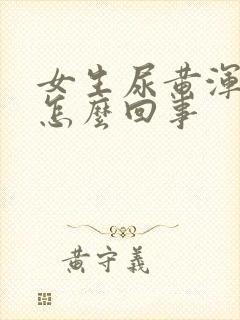 女生尿黄渾
怎麼回事
黄守義